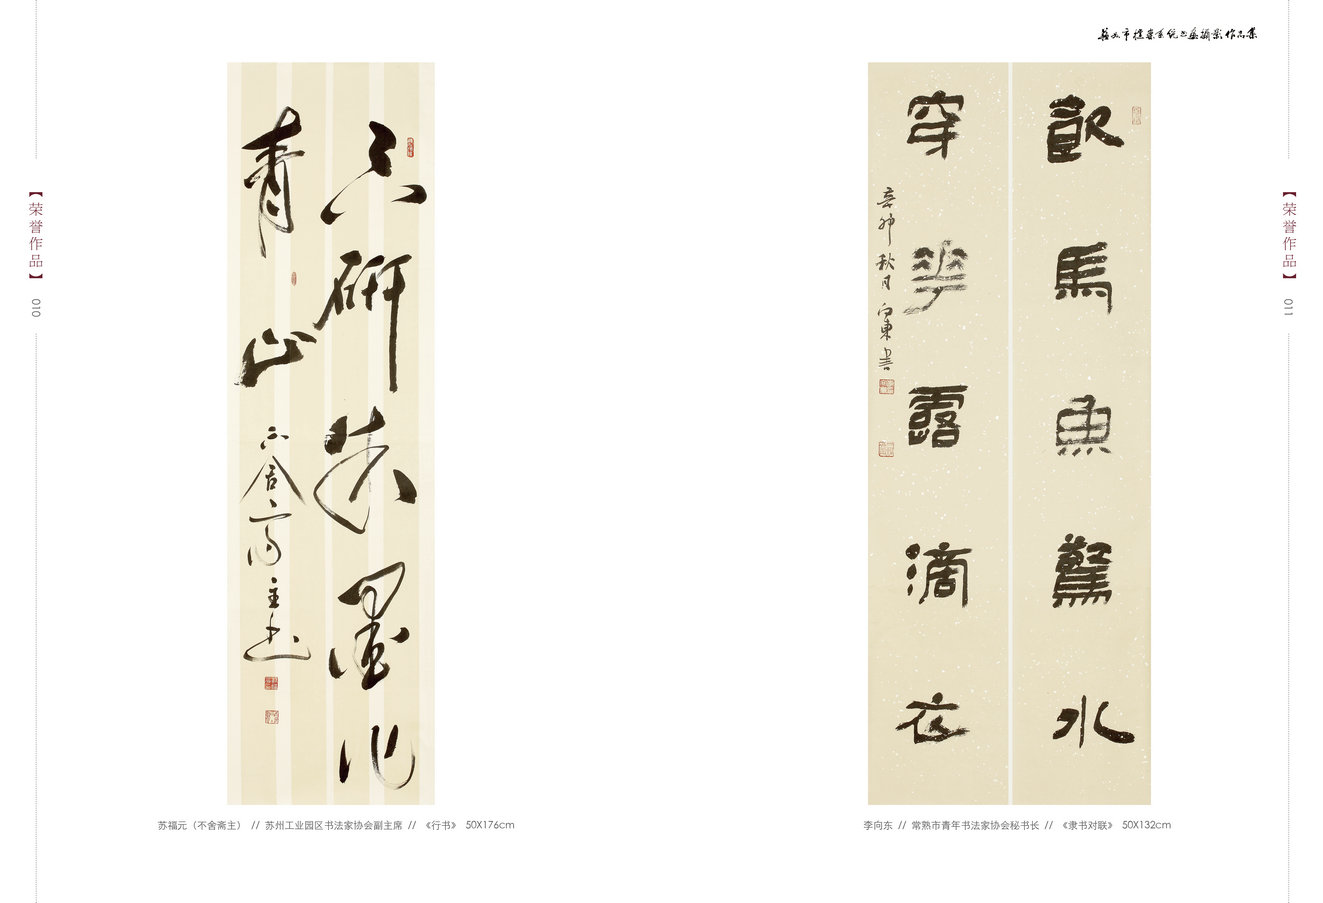 蘇州市檔案系统书画摄影作品集
【荣誉作品】
010
只研朱墨作
春山
不舍斋主书
苏福元（不舍斋主） // 苏州工业园区书法家协会副主席 // 《行书》 50X176cm
飲馬魚驚水
穿花露滴衣
辛卯秋月向東書
李向东 // 常熟市青年书法家协会秘书长 // 《隶书对联》 50X132cm
【荣誉作品】
011